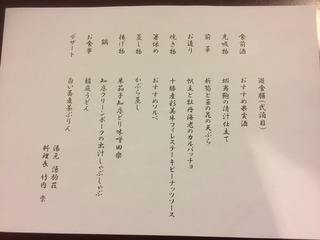 遊食膳(弐泊目)
食前酒 おすすめ果実酒
先吸物 蝦夷鮑の清汁仕立て
前菜 新筍と菜の花の天ぷら
お造り 帆立と牡丹海老のカルパッチョ
焼き物 十勝産彩美牛フィレステーキピーナッツソース
箸休め おすすめソルベ
蒸し物 かぶら蒸し
揚げ物 米茄子知床どり味噌田楽
鍋 知床クリーンポークの出汁しゃぶしゃぶ
お食事 稲庭うどん
デザート 白い蕎麦茶ぷりん
湯元 湧駒荘
料理長 竹内 崇